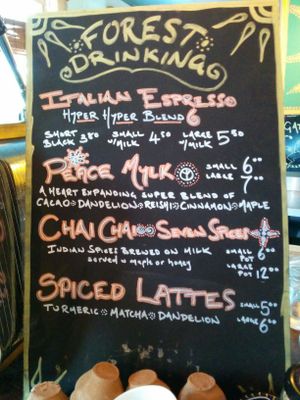 FOREST
DRINKING
ITALIAN ESPRESSO
HYPER HYPER BLEND 6
SHORT BLACK 3.80 SMALL W/MILK 4.50 LARGE W/MILK 5.80
PEACE MYLK SMALL 6.00
LARGE 7.00
A HEART EXPANDING SUPER BLEND OF
CACAO DANDELION REISHI CINNAMON MAPLE
CHAI CHAI SEVEN SPICES
INDIAN SPICES BREWED ON MILK SMALL POT 6.00
served w maple or honey LARGE POT 12.00
SPICED LATTES
SMALL 5.00
TURMERIC - MATCHA - DANDELION LARGE 6.00